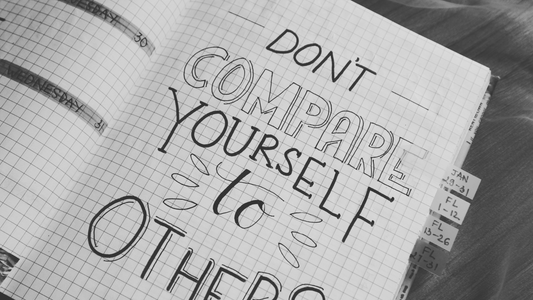 30
WEDNESDAY
31
DON'T
COMPARE
YOURSELF
to
OTHERS
JAN
FL
1-12
FL
13-26
FL